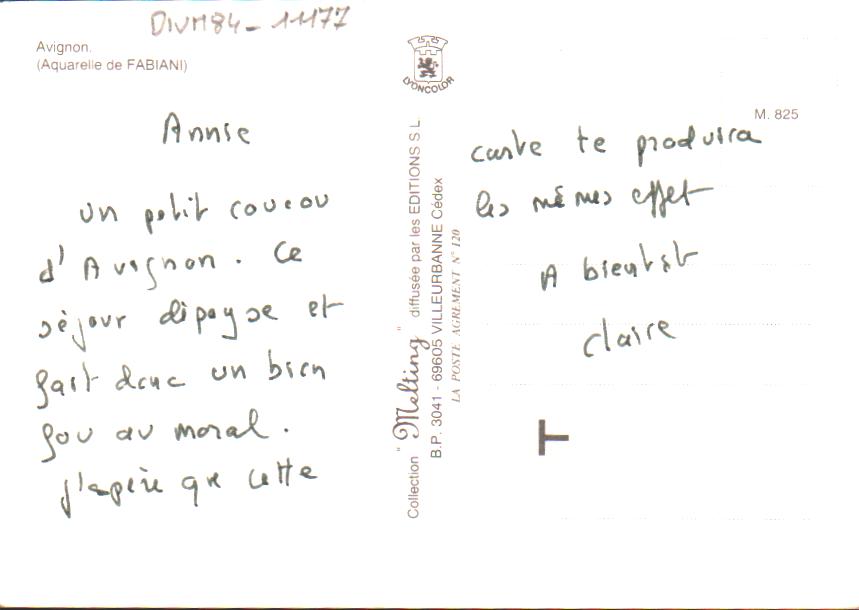 DIVM84-11177
Avignon.
(Aquarelle de FABIANI)
Annie
un petit coucou
d'Avignon. Ce
séjour dépayse et
fait donc un bien
fou au moral.
j'espère que cette
LYONCOLOR
Collection "Melting" diffusée par les EDITIONS S L
B.P. 3041 - 69605 VILLEURBANNE Cédex
LA POSTE AGREMENT N° 120
M. 825
carte te produira
les mêmes effet
A bientôt
Claire
T